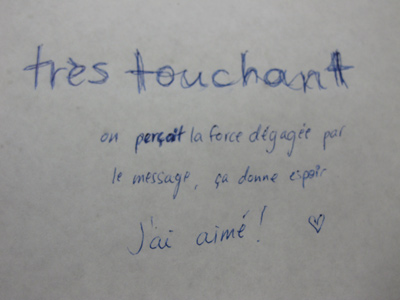 très touchant
on perçoit la force dégagée par
le message, ça donne espoir
J'ai aimé! ♡